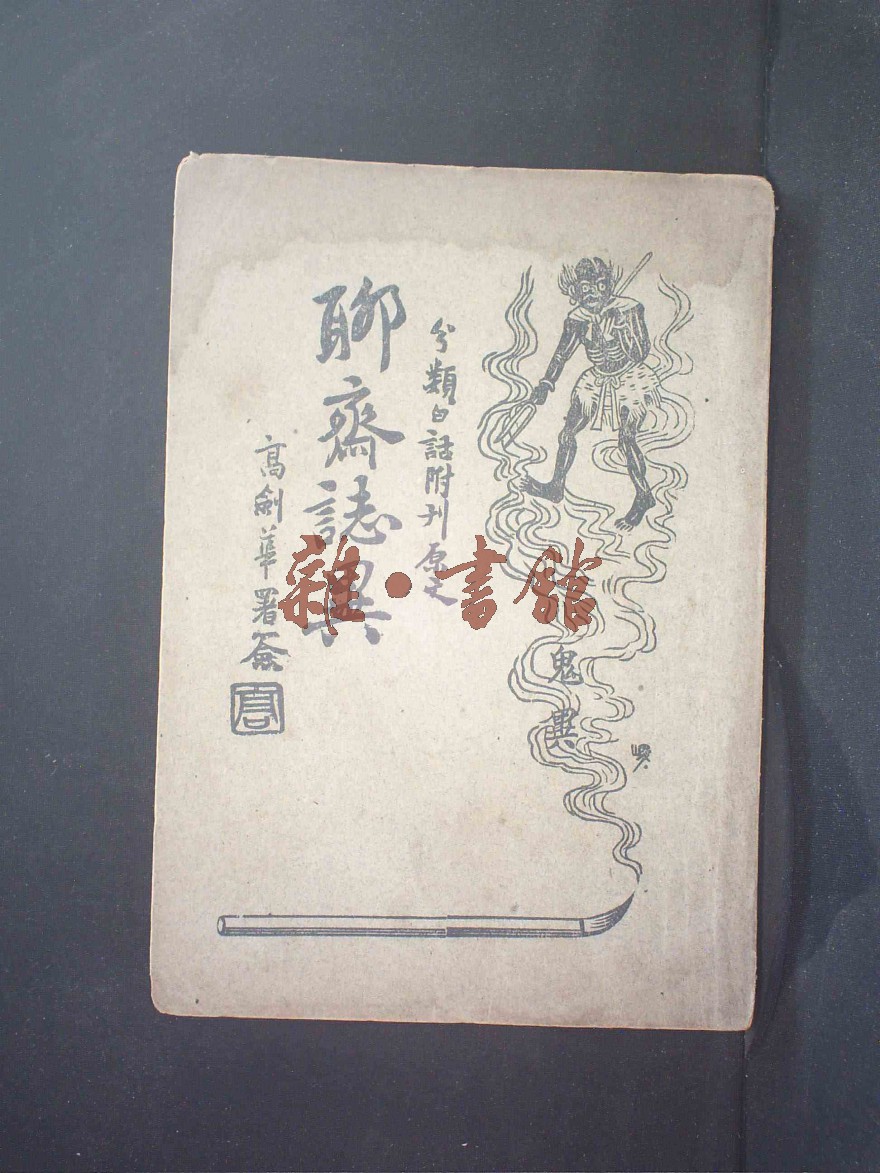 分類白話附刊原文
聊齋誌異
高劍華署簽
鬼異
雜·書館